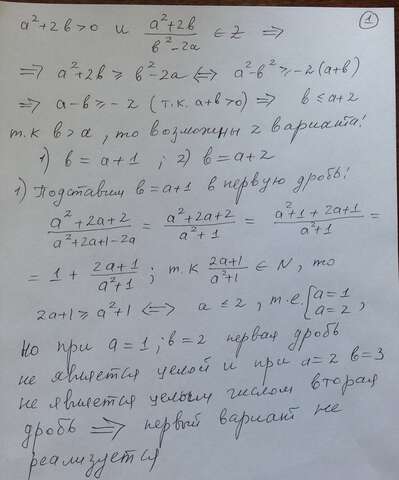 ①
a²+2b>0 и (a²+2b)/(b²-2a) ∈ Z ⇒
⇒ a²+2b ≥ b²-2a ⇔ a²-b² ≥ -2(a+b)
⇒ a-b ≥ -2 (т.к. a+b>0) ⇒ b ≤ a+2
т.к b>a, то возможны 2 варианта:
1) b = a+1 ; 2) b = a+2
1) Подставим b=a+1 в первую дробь:
(a²+2a+2)/(a²+2a+1-2a) = (a²+2a+2)/(a²+1) = (a²+1+2a+1)/(a²+1) =
= 1 + (2a+1)/(a²+1) ; т.к (2a+1)/(a²+1) ∈ N, то
2a+1 ≥ a²+1 ⇔ a ≤ 2, т.е. [a=1 a=2,
Но при a=1; b=2 первая дробь
не является целой и при a=2 b=3
не является целым числом вторая
дробь ⇒ первый вариант не
реализуется